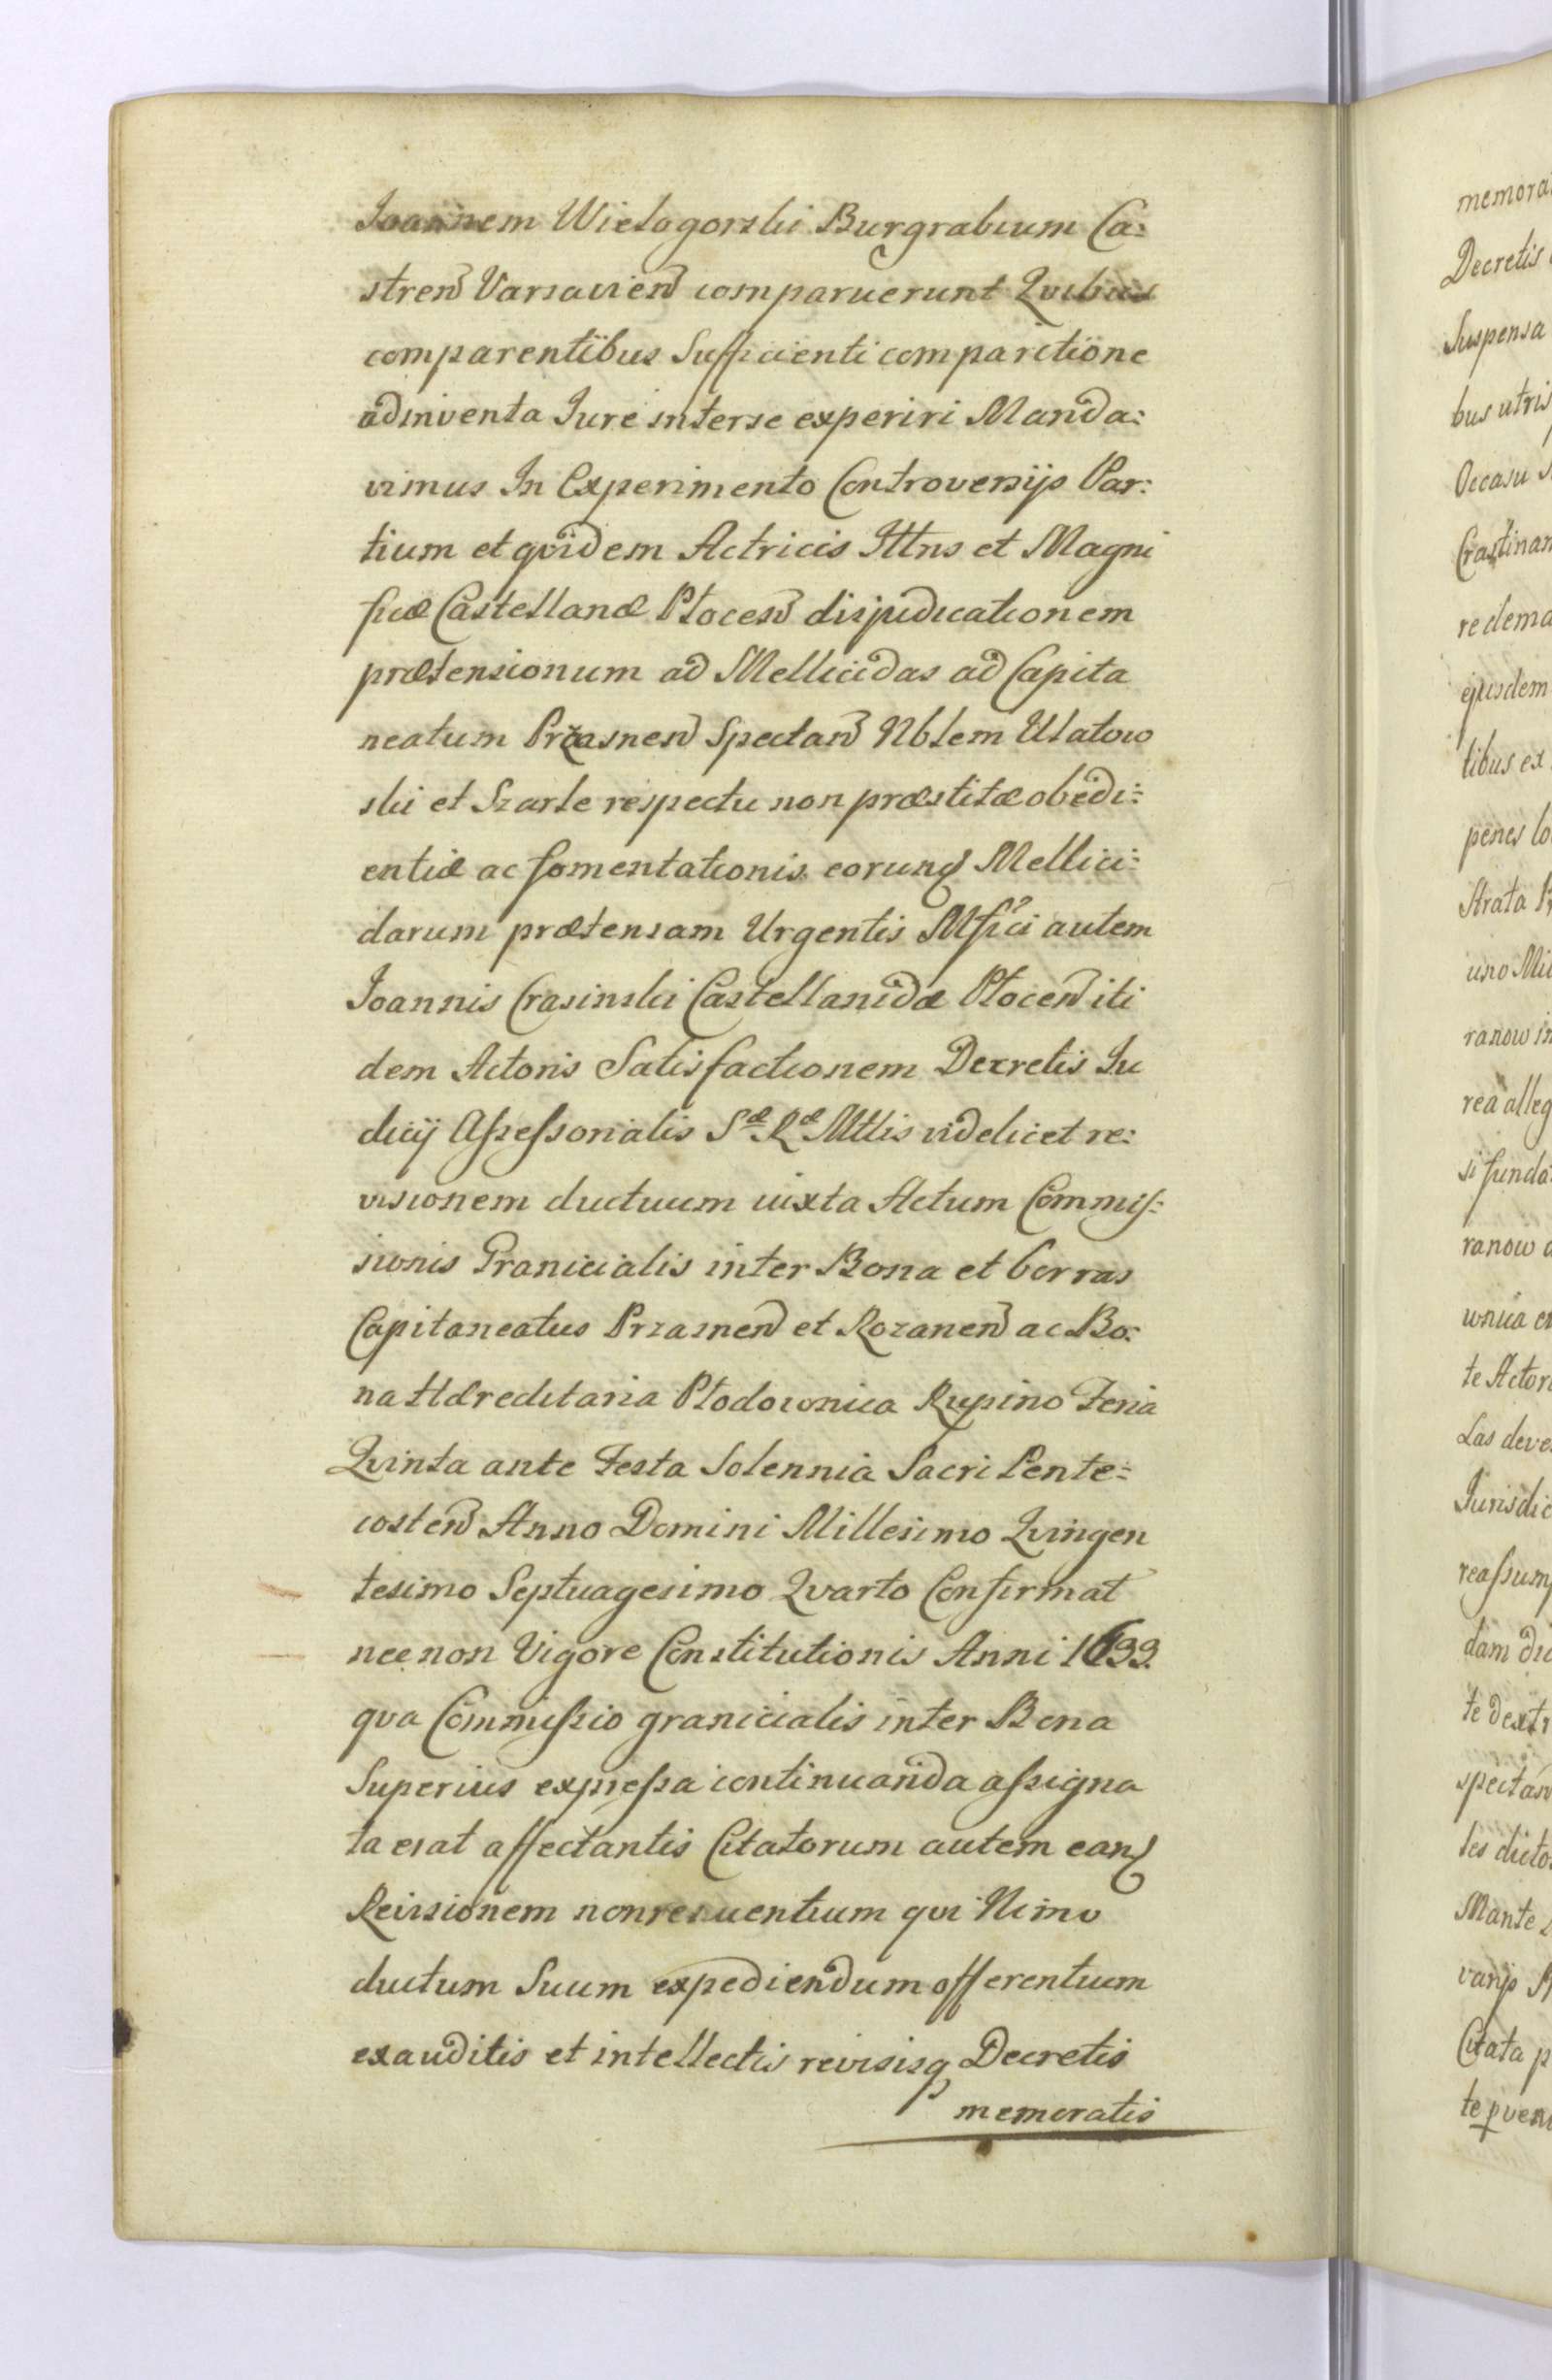 Joannem Wielogorski Burgrabium Ca:
stren̄ Varsavien̄ comparuerunt Qvibus
comparentibus Sufficienti comparitione
adinventa Jure interse experiri Manda:
vimus In Experimento Controversijs Par:
tium et qvidem Actricis Illns et Magni
ficæ Castellanæ Plocen̄ disjudicationem
prætensionum ad Mellicidas ad Capita
neatum Przasnen̄ Spectan̄ Nblem Ulatow
ski et Szarle respectu non præstitæ obedi:
entiæ ac fomentationis eorunđ Mellici:
darum prætensam Urgentis Mfici autem
Joannis Crasinski Castellanidæ Plocen̄ iti
dem Actoris Satisfactionem Decretis Ju
dicij Assessorialis Sæ Ræ Mttis videlicet re:
visionem ductuum iuxta Actum Commis:
sionis Granicialis inter Bona et borras
Capitaneatus Przasnen̄ et Rozanen̄ ac Bo:
na Hæreditaria Plodownica Rupino Feria
Qvinta ante Festa Solennia Sacri Pente:
costen̄ Anno Domini Millesimo Qvingen
tesimo Septuagesimo Qvarto Confirmat
necnon Vigore Constitutionis Anni 1699.
qva Commissio granicialis inter Bona
Superius expressa continuanda assigna
ta erat affectantis Citatorum autem eanđ
Reivsionem nonrenuentium qvi Nimo
ductum Suum expediendum offerentium
exauditis et intellectis revisisq Decretis
memoratis
memora
Decretis
Suspensa
bus utris
Occasu
Crastinam
redema
ejusdem
tibus ex
penes lo
Strata
uno Mi
ranow in
rea alleg
si funda
ranow
wnica
te Actor
Las deve
Jurisdic
reassum
dam
te dextr
spectan
les dicto
Mante
varijs
Citata p